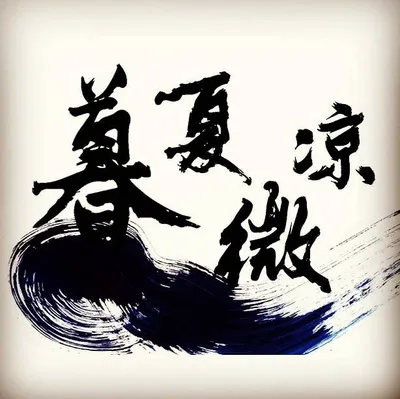 暮夏微凉